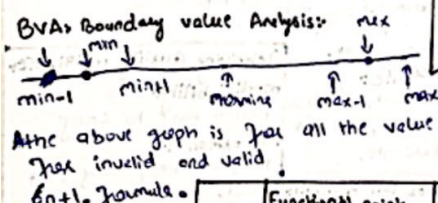 BVA > Boundary value Analysis:-
min max
min-1 min+1 max-1 max
Athe above graph is for all the value
for invalid and valid
6n+1. formula.